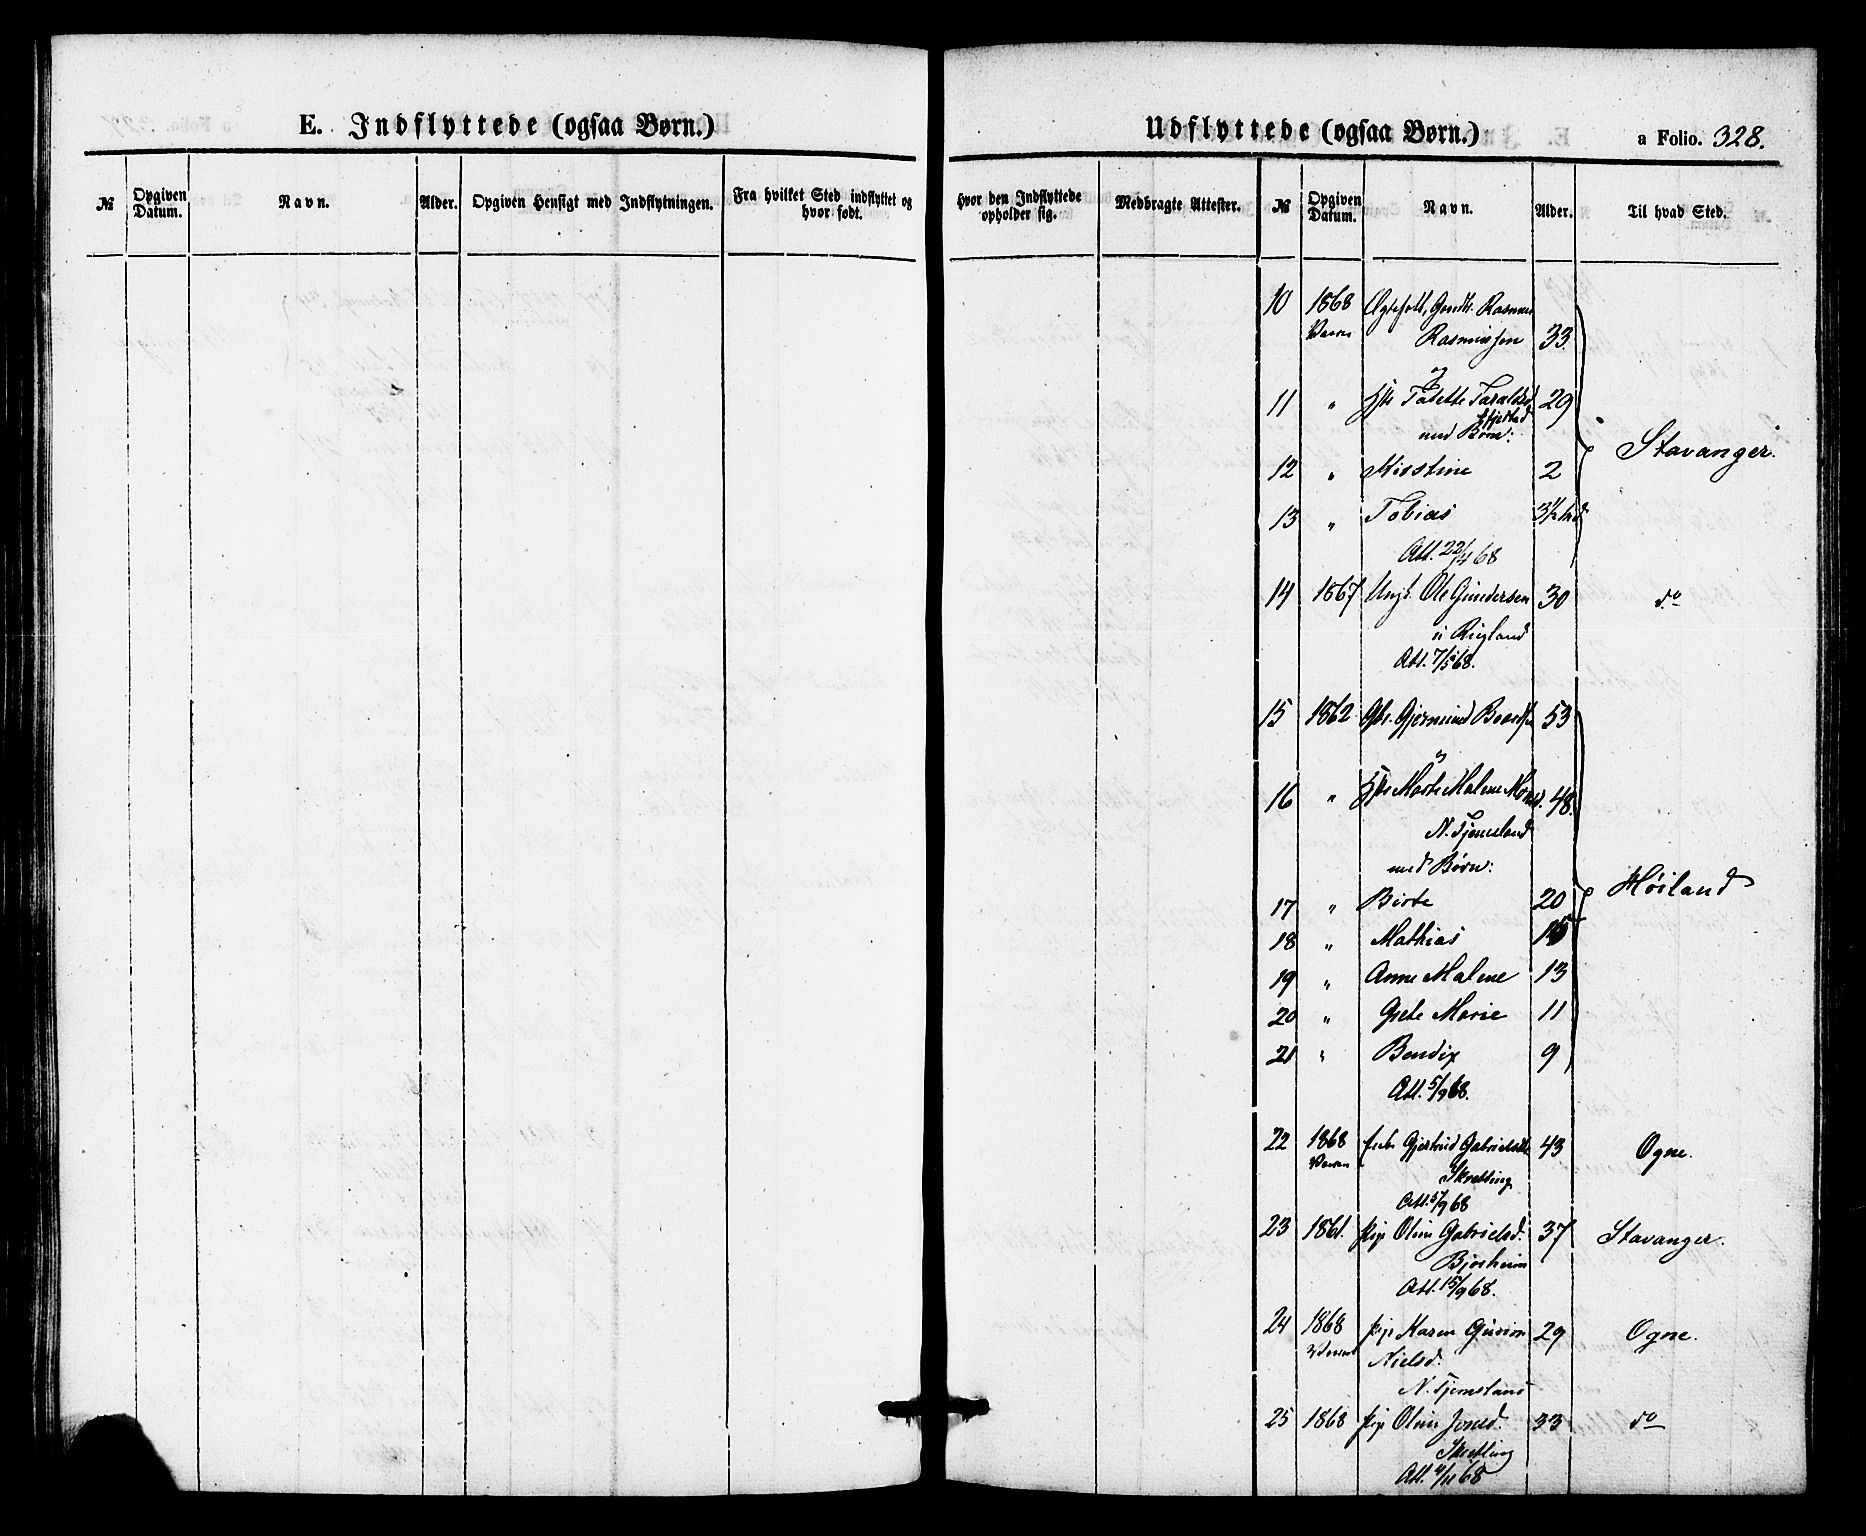 E. Indflyttede (ogsaa Børn.)
№ Opgiven Datum. Navn. Alder. Opgiven Hensigt med Indflytningen. Fra hvilket Sted indflyttet og hvor født.
Udflyttede (ogsaa Børn.) a Folio. 328.
hvor den Indflyttede opholder sig. Medbragte Attester. № Opgiven Datum. Navn. Alder. Til hvad Sted.
10 1868 Rasmus
Vaaren Rasmussen 33
og
11 " Tabette 29
med Børn:
Stavanger.
12 " Kirstine 2
13 " Tobias 3½
Att. 22/4 68
14 1867 Ungk. Ole Gundersen 30 do
Att. 7/5 68.
15 1862 Gbr. Gjermund 53
og
16 " Marte Malene 48.
N. Tjemsland
med Børn:
Høiland
17 " Birte 20
18 " Mathias
19 " Anne Malene 13
20 " Grete Marie 11
21 " Bendix 9
Att. 5/9 68.
22 1868 Gjertrud Gabrielsdt. 43 Ogne.
Vaaren Skretting
Att. 5/9 68
23 1861. Pige Oline Gabrielsd. 37 Stavanger.
Bjorheim
Att. 15/9 68.
24 1868 Pige Karen 29 Ogne.
Vaaren Nielsd.
N. Tjemsland
25 1868 Pige Oline Jonsd. 33 do
Skretling
Att. 4/11 68